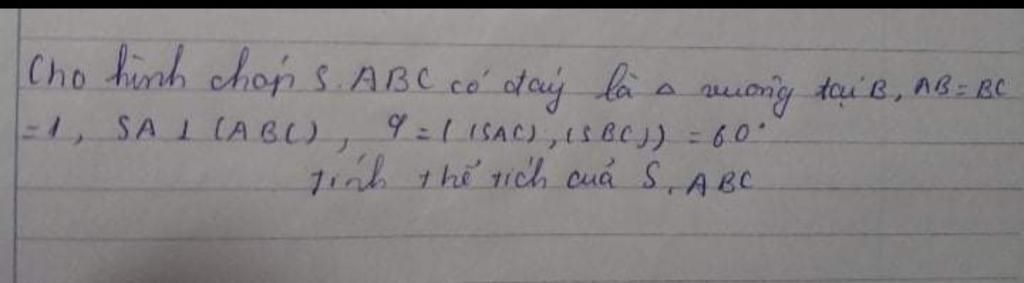 Cho hình chóp S.ABC có đáy là Δ vuông tại B, AB = BC
= 1, SA ⊥ (ABC), φ = ((SAC), (SBC)) = 60°
Tính thể tích của S.ABC